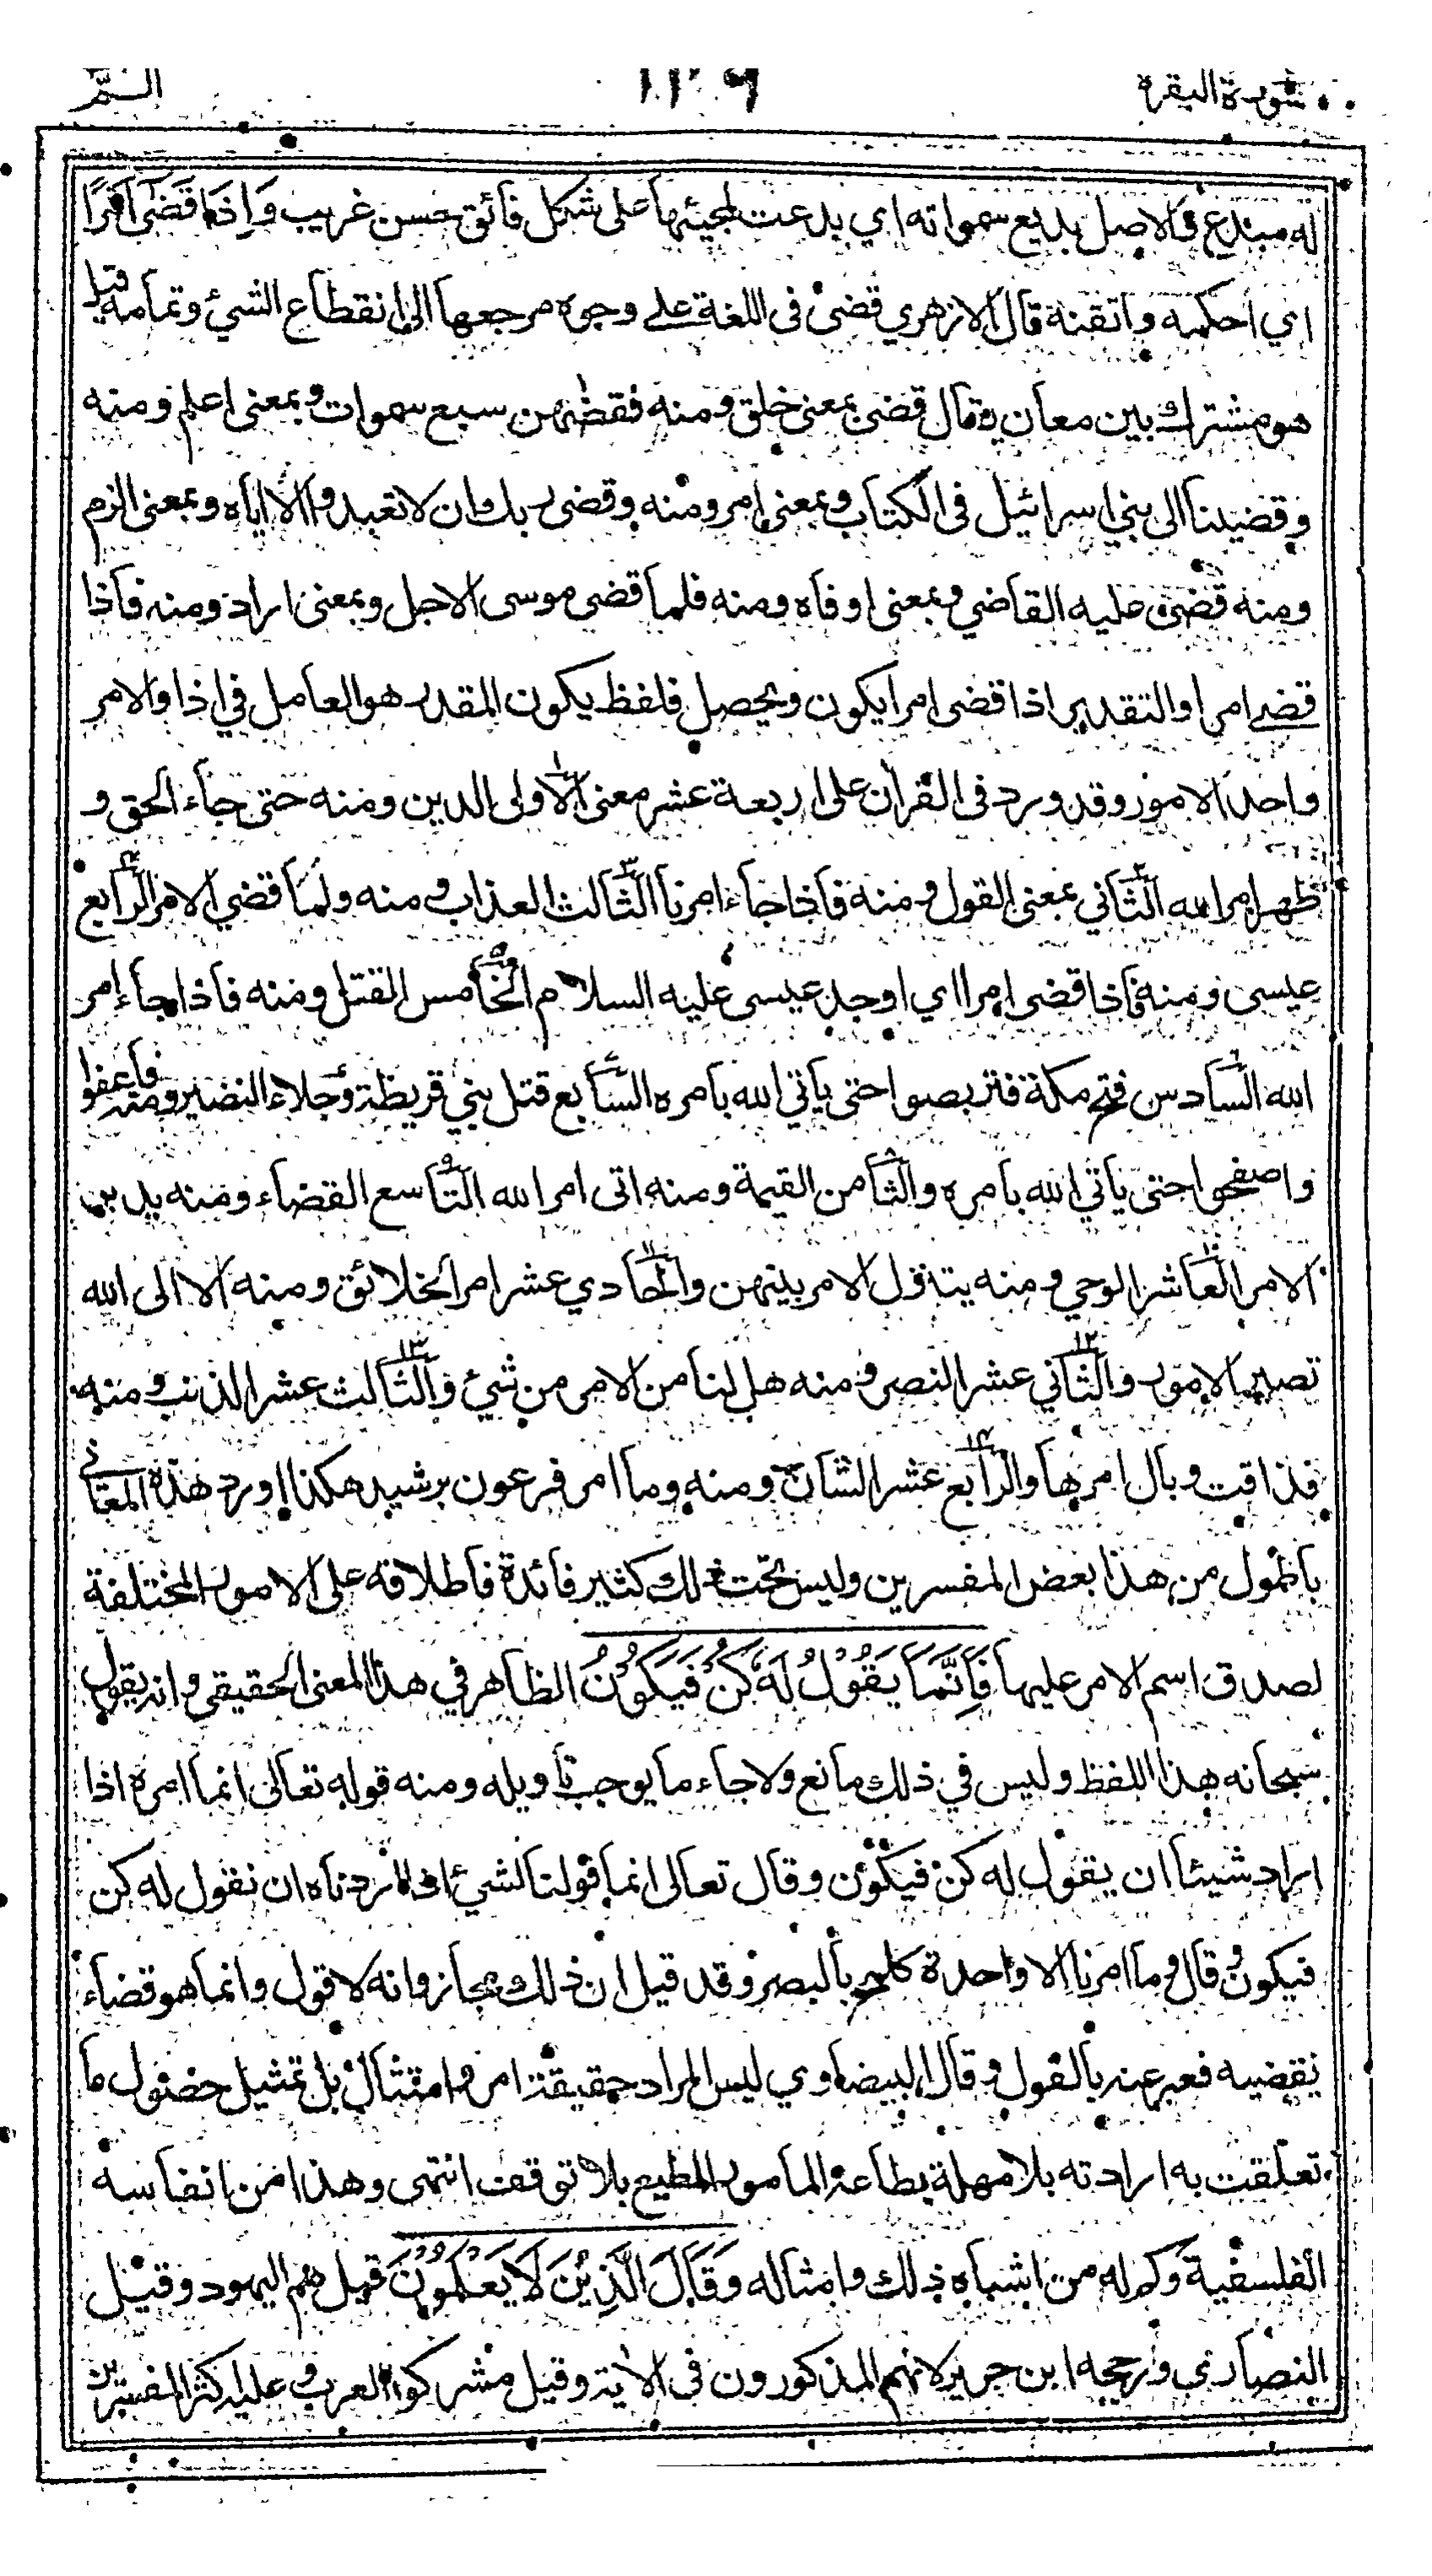 سورة البقرة ١٣٦ الـم
له مبتدع في الاصل بديع سمواته اي بدعت لمجيئها على شكل فائق حسن غريب وَاِذَا قَضٰى اَمْرًا
اي احكمه واتقنه قال الازهري قضى في اللغة على وجوه مرجعها الى انقطاع الشيء وتمامه قيل
هو مشترك بين معان يقال قضى بمعنى خلق ومنه فقضٰهن سبع سموات وبمعنى اعلم ومنه
وقضينا الى بني اسرائيل في الكتاب وبمعنى امر ومنه وقضى ربك ان لا تعبدوا الا اياه وبمعنى الزم
ومنه قضى عليه القاضي وبمعنى اوفاه ومنه فلما قضى موسى الاجل وبمعنى اراد ومنه فاذا
قضى امرا والتقدير اذا قضى امرا يكون ويحصل فلفظ يكون المقدر هو العامل في اذا والامر
واحد الامور وقد ورد في القرآن على اربعة عشر معنى الاولى الدين ومنه حتى جاء الحق و
ظهر امر الله الثاني بمعنى القول ومنه فاذا جاء امرنا الثالث العذاب ومنه ولما قضي الامر الرابع
عيسى ومنه فاذا قضى امرا اي اوجد عيسى عليه السلام الخامس القتل ومنه فاذا جاء امر
الله السادس فتح مكة فتربصوا حتى ياتي الله بامره السابع قتل بني قريظة وجلاء النضير ومنه فاعفوا
واصفحوا حتى ياتي الله بامره والثامن القيمة ومنه اتى امر الله التاسع القضاء ومنه يدبر
الامر العاشر الوحي ومنه يتنزل الامر بينهن والحادي عشر امر الخلائق ومنه الا الى الله
تصير الامور والثاني عشر النصر ومنه هل لنا من الامر من شيء والثالث عشر الذنب ومنه
فذاقت وبال امرها والرابع عشر الشان ومنه وما امر فرعون برشيد هكذا اورد هذه المعاني
باطول من هذا بعض المفسرين وليس تحت ذلك كثير فائدة فاطلاقه على الامور المختلفة
لصدق اسم الامر عليها فَاِنَّمَا يَقُوْلُ لَهٗ كُنْ فَيَكُوْنُ الظاهر في هذا المعنى الحقيقي وانه يقول
سبحانه هذا اللفظ وليس في ذلك مانع ولا جاء ما يوجب تاويله ومنه قوله تعالى انما امره اذا
اراد شيئا ان يقول له كن فيكون وقال تعالى انما قولنا لشيء اذا اردناه ان نقول له كن
فيكون وقال وما امرنا الا واحدة كلمح بالبصر وقد قيل ان ذلك مجاز وانه لا قول وانما هو قضاء
يقضيه فعبر عنه بالقول وقال البيضاوي ليس المراد حقيقة امر وامتثال بل تمثيل حصول ما
تعلقت به ارادته بلا مهلة بطاعة المامور المطيع بلا توقف انتهى وهذا من انفاسه
الفلسفية وكم له من اشباه ذلك وامثاله وَقَالَ الَّذِيْنَ لَا يَعْلَمُوْنَ قيل هم اليهود وقيل
النصارى ورجحه ابن جرير لانهم المذكورون في الآية وقيل مشركوا العرب وعليه اكثر المفسرين